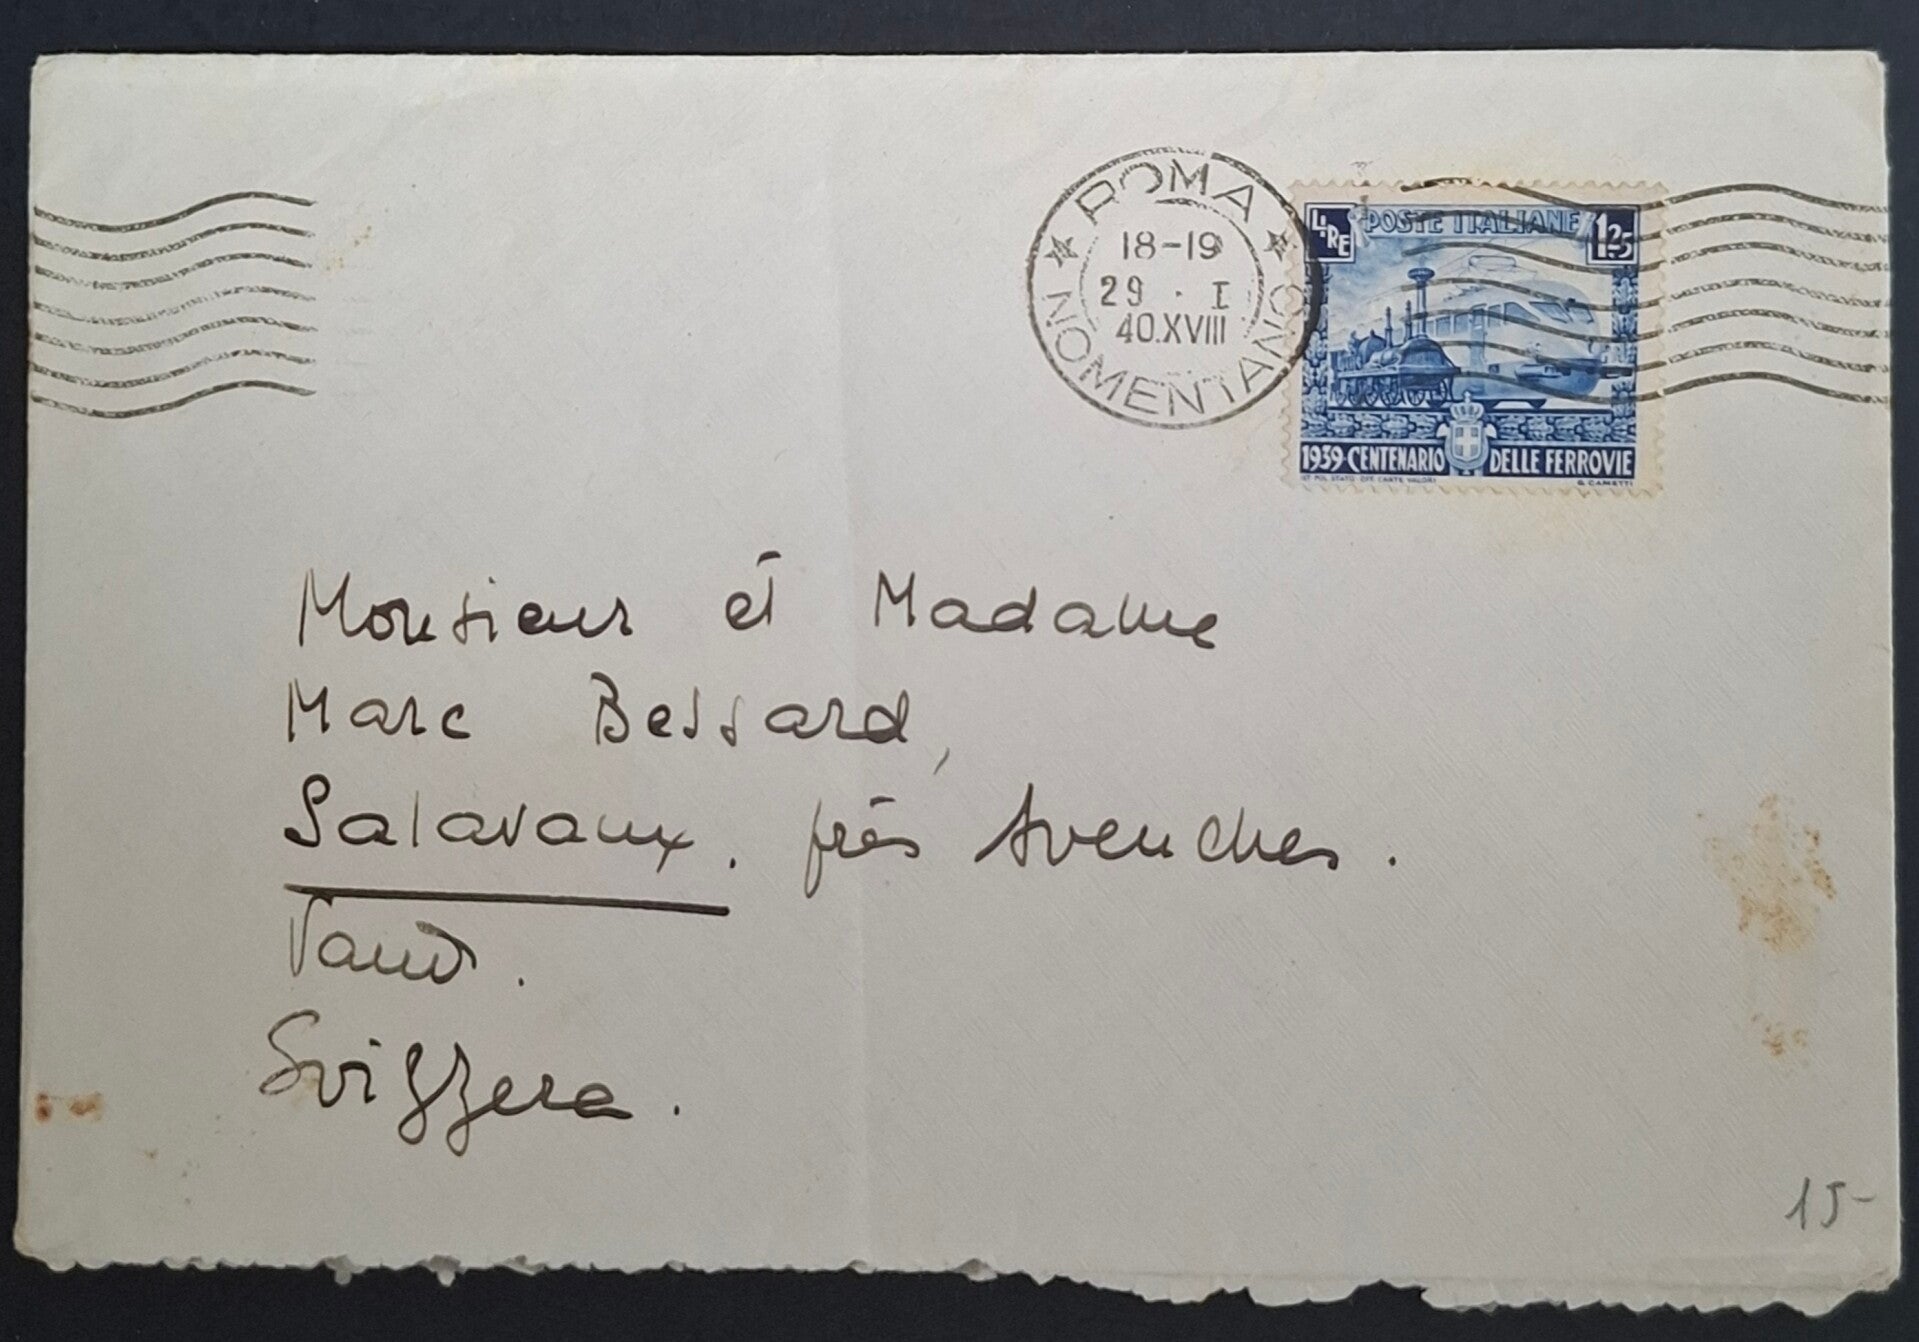 ROMA
18-19
29 · I
40.XVIII
NOMENTANO
LIRE POSTE ITALIANE 1.25
1939 CENTENARIO DELLE FERROVIE
IST. POL. STATO OFF. CARTE VALORI
Monsieur et Madame
Marc Bessard,
Salavaux. près Avenches.
Vaud.
Svizzera.
15-